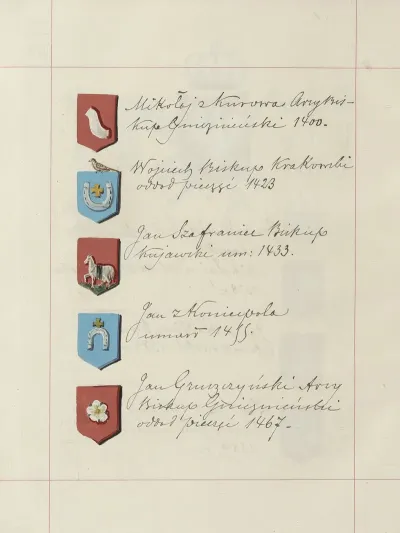 Mikołaj z Kurowa Arcybis-
kup Gnieźnieński 1400.
Wojciech Biskup Krakowski
oddał pieczęć 1423
Jan Szafraniec Biskup
Kujawski um: 1433.
Jan z Koniecpola
umarł 1455.
Jan Gruszczyński Arcy
Biskup Gnieźnieński
oddał pieczęć 1467.-